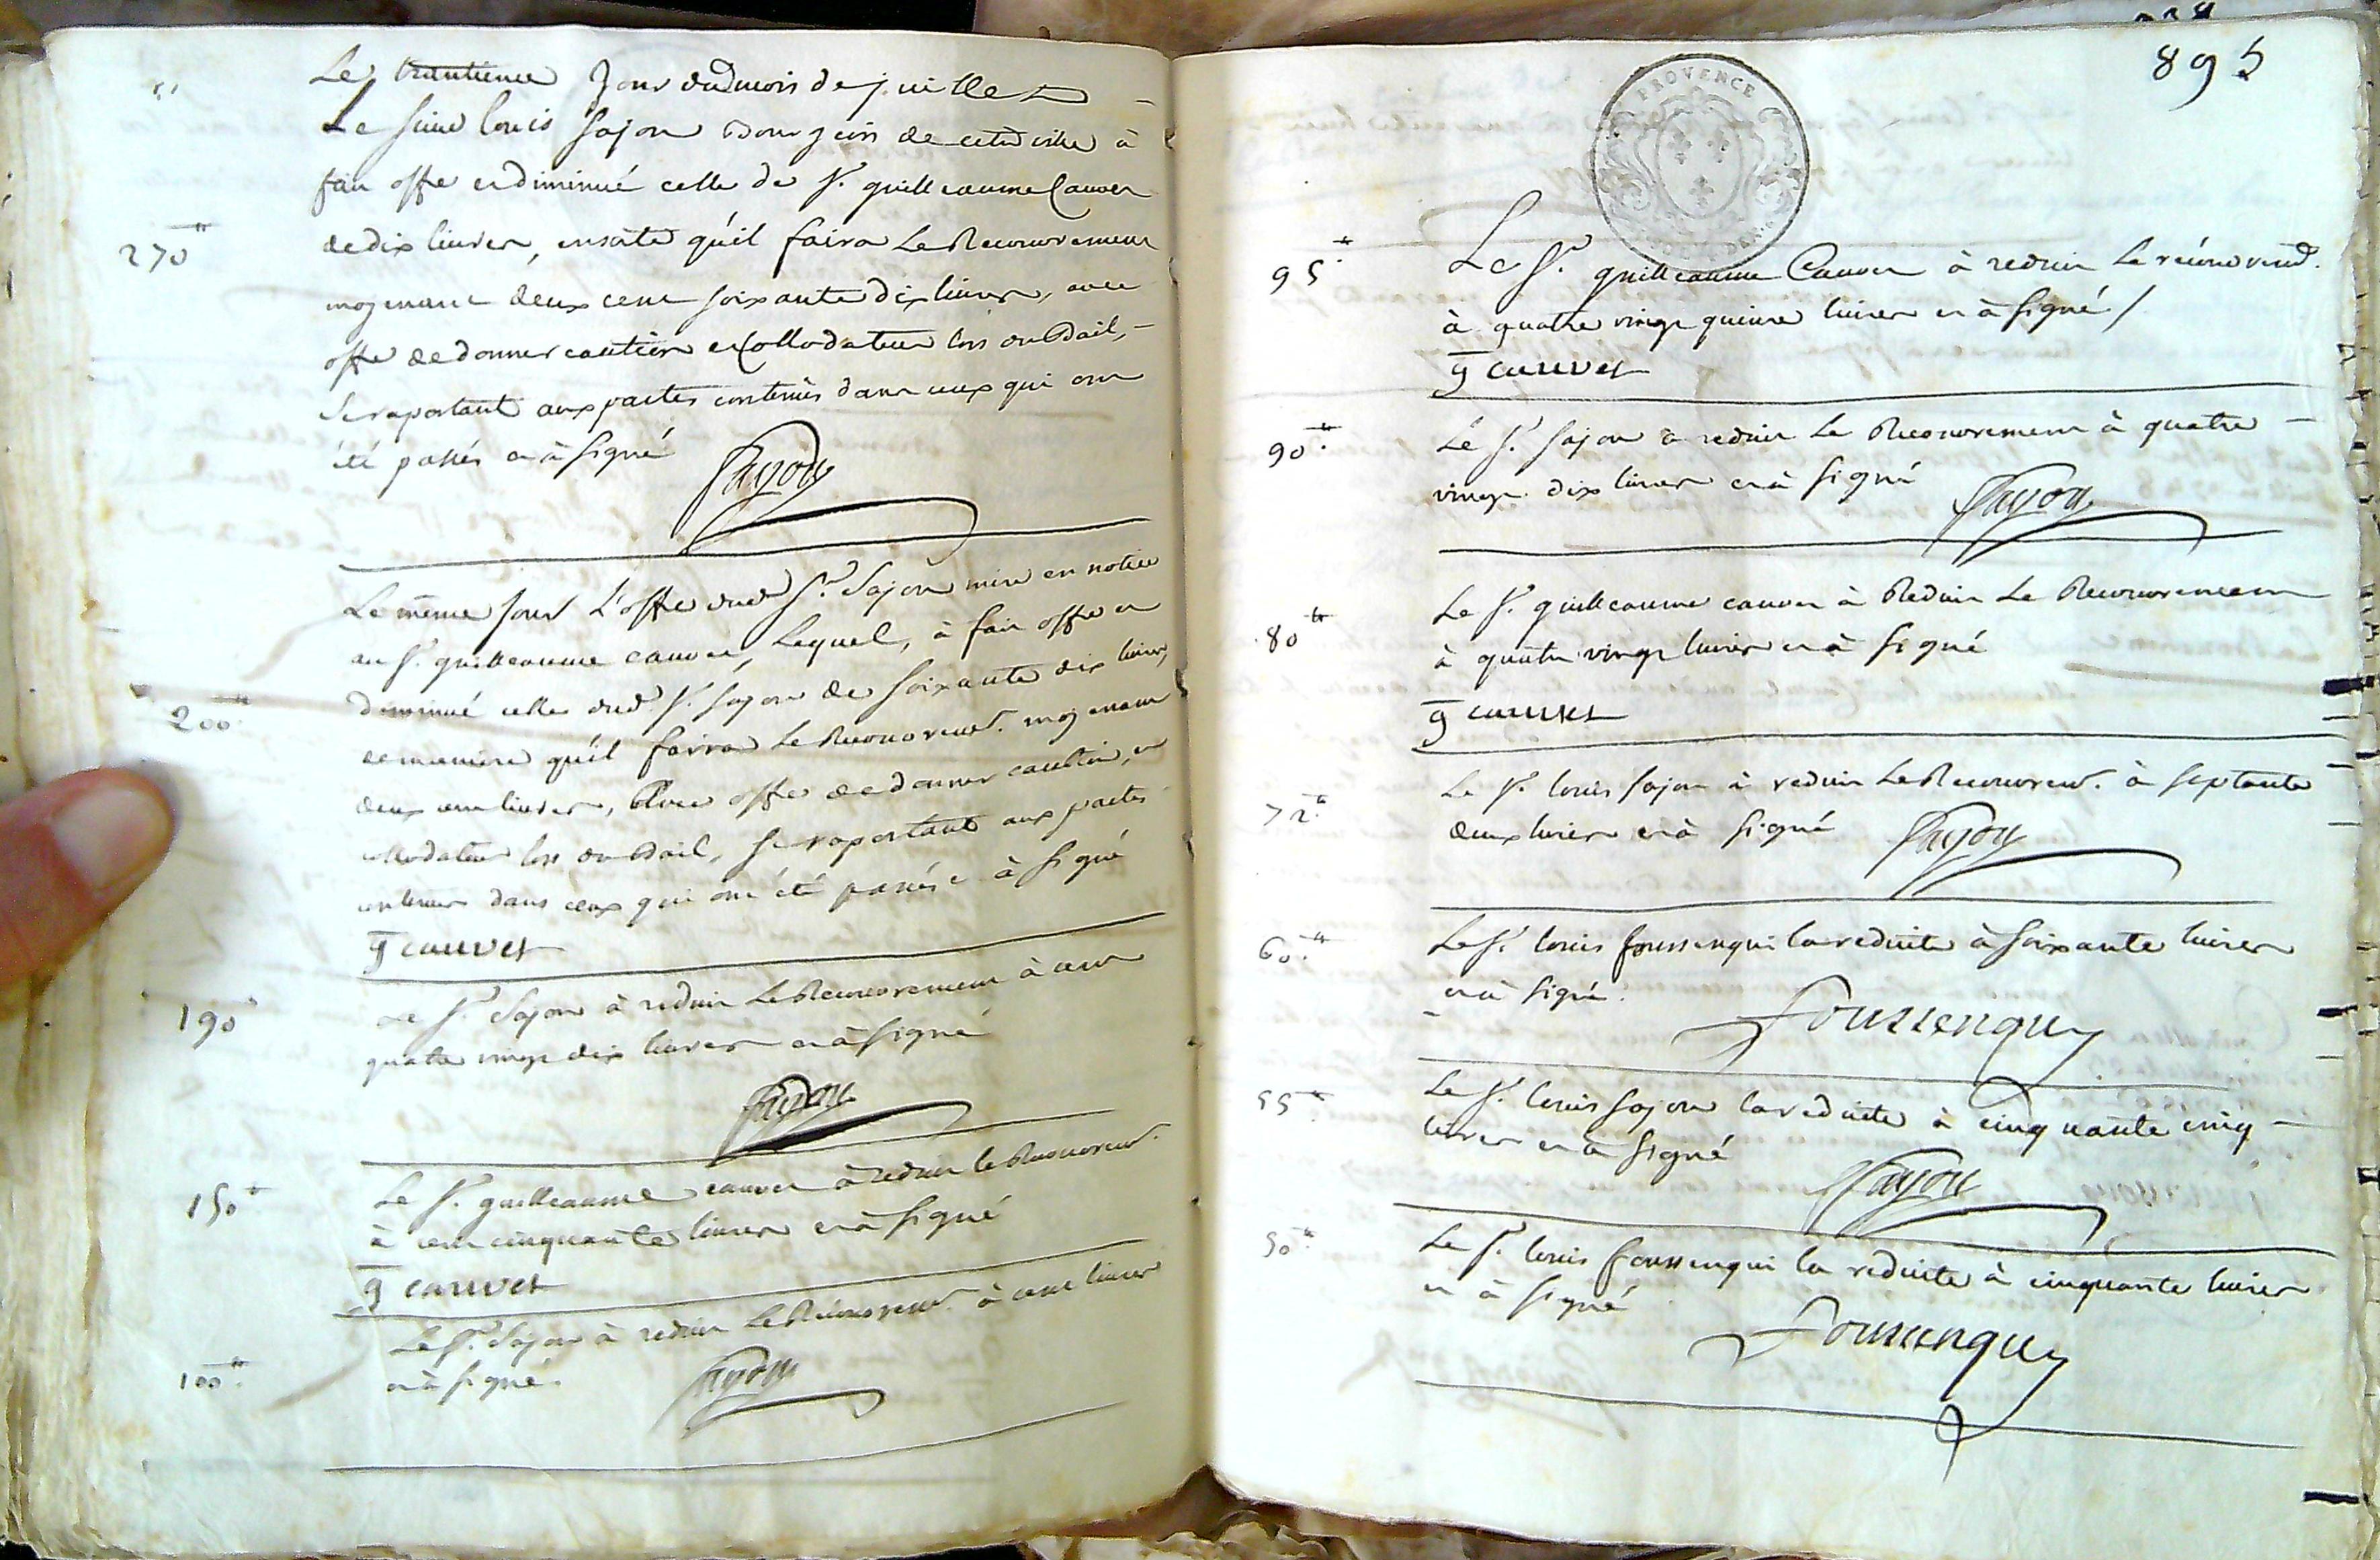 Le trantieme Jour dudmois de juillet
Le sieur louis sajou Bourgeois de cette ville à
fair offre et diminué celle de Sr. guilleaume Cauvet
270 ₶
de dix livres, ensorte qu'il faira Le Recouvrement
moyenant deux cent soixante dix livres, avec
offre de donner caution et Collodateur lors du Bail,
se raportant aux pactes contenus dans ceux qui ont
été passés et à signé
Sajou
Le même jour L'offre dud Sr. Sajou mise en notice
au Sr. guilleaume cauvet, Lequel, à fair offre et
diminué celle dud. Sr. sajou de soixante dix livres,
200 ₶
de maniere qu'il faira Le Recouvremt. moyenant
deux cent livres, avec offre de donner caution, et
collodateur lors du Bail, se raportant aux pactes
contenus dans ceux qui ont été passés e à signé
g cauvet
190
Le Sr. Sajou à reduit Le Recouvrement à cent
quatre vingt dix livres et à signé
Sajou
150 ₶
Le Sr. guilleaume cauvet à reduit le Recouvremt.
à cent cinquante livres et à signé
g cauvet
Le Sr. Sajou à reduit Le Recouvremt. à cent livres
100 ₶
et à signé.
Sajou
895
PROVENCE
95 ₶
Le Sr. guilleaume Cauvet à reduit Le récouvremt.
à quatre vingt quinze livres et à signé /
g cauvet
90 ₶
Le Sr. sajou à reduit Le Recouvrement à quatre
vingt dix livres et à signé
Sajou
Le Sr. guilleaume cauvet à Reduit Le Recouvrement
80 ₶
à quatre vingt livres et à signé
g cauvet
Le Sr. louis sajou à reduit Le Recouvremt. à septante
72 ₶
deux livres et à signé
Sajou
60 ₶
Le Sr. louis foussenqui la reduite à soixante livres
et à signé.
Foussenquy
55 ₶
Le Sr. louis sajou la reduite à cinquante cinq
livres et à signé
Sajou
50 ₶
Le Sr. louis foussenqui la reduite à cinquante livres
et à signé
Foussenquy